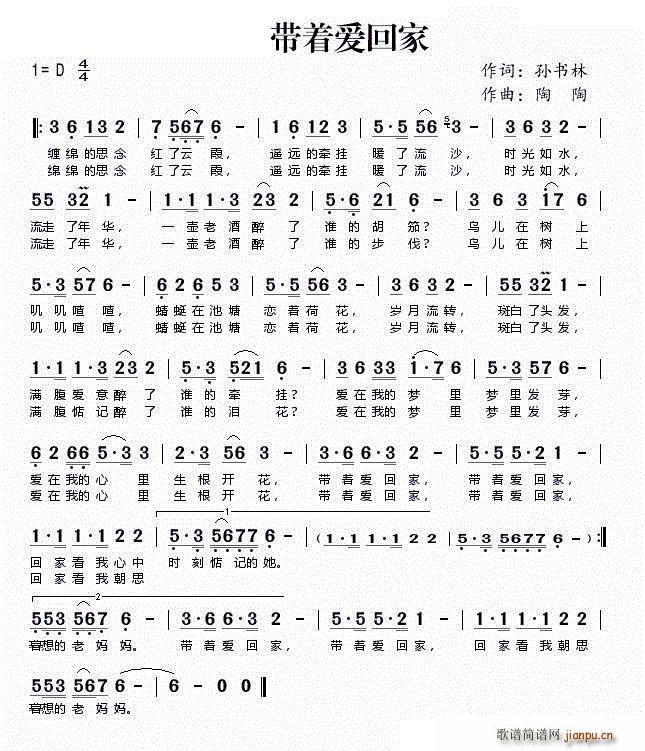 带着爱回家
1=D 4/4
作词：孙书林
作曲：陶 陶
‖: 3 6 1 3 3 2 | 7 5 6 7 6 - | 1 6 1 2 3 | 5·5 5 6 5 3 - | 3 6 3 2 -
缠绵的思念 红了云霞， 遥远的牵挂 暖了流 沙， 时光如水，
绵绵的思念 红了云霞， 遥远的牵挂 暖了流 沙， 时光如水，
55 32 1 - | 1·1 1·3 23 2 | 5·6 21 6 - | 3 6 3 17 6
流走了年华， 一壶老酒醉 了 谁的胡 笳？ 鸟儿在树上
流走了年华， 一壶老酒醉 了 谁的步 伐？ 鸟儿在树上
5·3 57 6 - | 6 2 6 5 3 | 5·5 56 3 - | 3 6 3 2 - | 55 32 1 - |
叽叽喳喳， 蜻蜓在池塘 恋着荷花， 岁月流转， 斑白了头发，
叽叽喳喳， 蜻蜓在池塘 恋着荷花， 岁月流转， 斑白了头发，
1·1 1·3 23 2 | 5·3 521 6 - | 3 6 33 1·7 6 | 5·3 57 6 - |
满腹爱意醉 了 谁的牵 挂？ 爱在我的梦 里 梦里发芽，
满腹惦记醉 了 谁的泪 花？ 爱在我的梦 里 梦里发芽，
6 2 66 5·3 3 | 2·3 57 3 - | 3·6 6·3 2 - | 5·5 5·2 1 - |
爱在我的心 里 生根开花， 带着爱回家， 带着爱回家，
爱在我的心 里 生根开花， 带着爱回家， 带着爱回家，
1
1·1 1·1 2 2 | 5·3 5677 6 - | (1·1 1·1 2 2 | 5·3 5677 6 - ) :‖
回家看我心中 时刻惦记的她。
回家看我朝思
2
553 567 6 - | 3·6 6·3 2 - | 5·5 5·2 1 - | 1·1 1·1 2 2 |
暮想的老妈妈。 带着爱回家， 带着爱回家， 回家看我朝思
553 567 6 - | 6 - 0 0 ‖
暮想的老妈妈。
歌谱简谱网 jianpu.cn